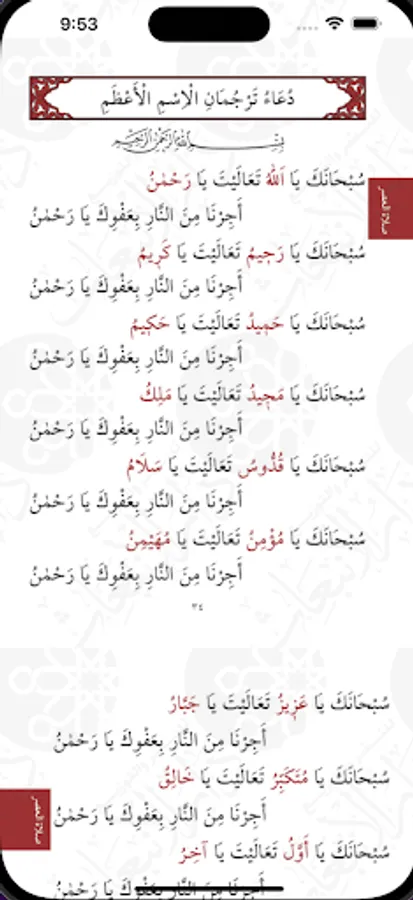 9:53
دُعَاءُ تَرْجُمَانِ الْاِسْمِ الْأَعْظَمِ
بِسْمِ اللهِ الرَّحْمٰنِ الرَّحِيمِ
سُبْحَانَكَ يَا اَللّٰهُ تَعَالَيْتَ يَا رَحْمٰنُ
صلاة العصر
أَجِرْنَا مِنَ النَّارِ بِعَفْوِكَ يَا رَحْمٰنُ
سُبْحَانَكَ يَا رَحِيمُ تَعَالَيْتَ يَا كَرِيمُ
أَجِرْنَا مِنَ النَّارِ بِعَفْوِكَ يَا رَحْمٰنُ
سُبْحَانَكَ يَا حَمِيدُ تَعَالَيْتَ يَا حَكِيمُ
أَجِرْنَا مِنَ النَّارِ بِعَفْوِكَ يَا رَحْمٰنُ
سُبْحَانَكَ يَا مَجِيدُ تَعَالَيْتَ يَا مَلِكُ
أَجِرْنَا مِنَ النَّارِ بِعَفْوِكَ يَا رَحْمٰنُ
سُبْحَانَكَ يَا قُدُّوسُ تَعَالَيْتَ يَا سَلَامُ
أَجِرْنَا مِنَ النَّارِ بِعَفْوِكَ يَا رَحْمٰنُ
سُبْحَانَكَ يَا مُؤْمِنُ تَعَالَيْتَ يَا مُهَيْمِنُ
أَجِرْنَا مِنَ النَّارِ بِعَفْوِكَ يَا رَحْمٰنُ
٣٤
سُبْحَانَكَ يَا عَزِيزُ تَعَالَيْتَ يَا جَبَّارُ
أَجِرْنَا مِنَ النَّارِ بِعَفْوِكَ يَا رَحْمٰنُ
سُبْحَانَكَ يَا مُتَكَبِّرُ تَعَالَيْتَ يَا خَالِقُ
أَجِرْنَا مِنَ النَّارِ بِعَفْوِكَ يَا رَحْمٰنُ
صلاة العصر
سُبْحَانَكَ يَا أَوَّلُ تَعَالَيْتَ يَا آخِرُ
أَجِرْنَا مِنَ النَّارِ بِعَفْوِكَ يَا رَحْمٰنُ